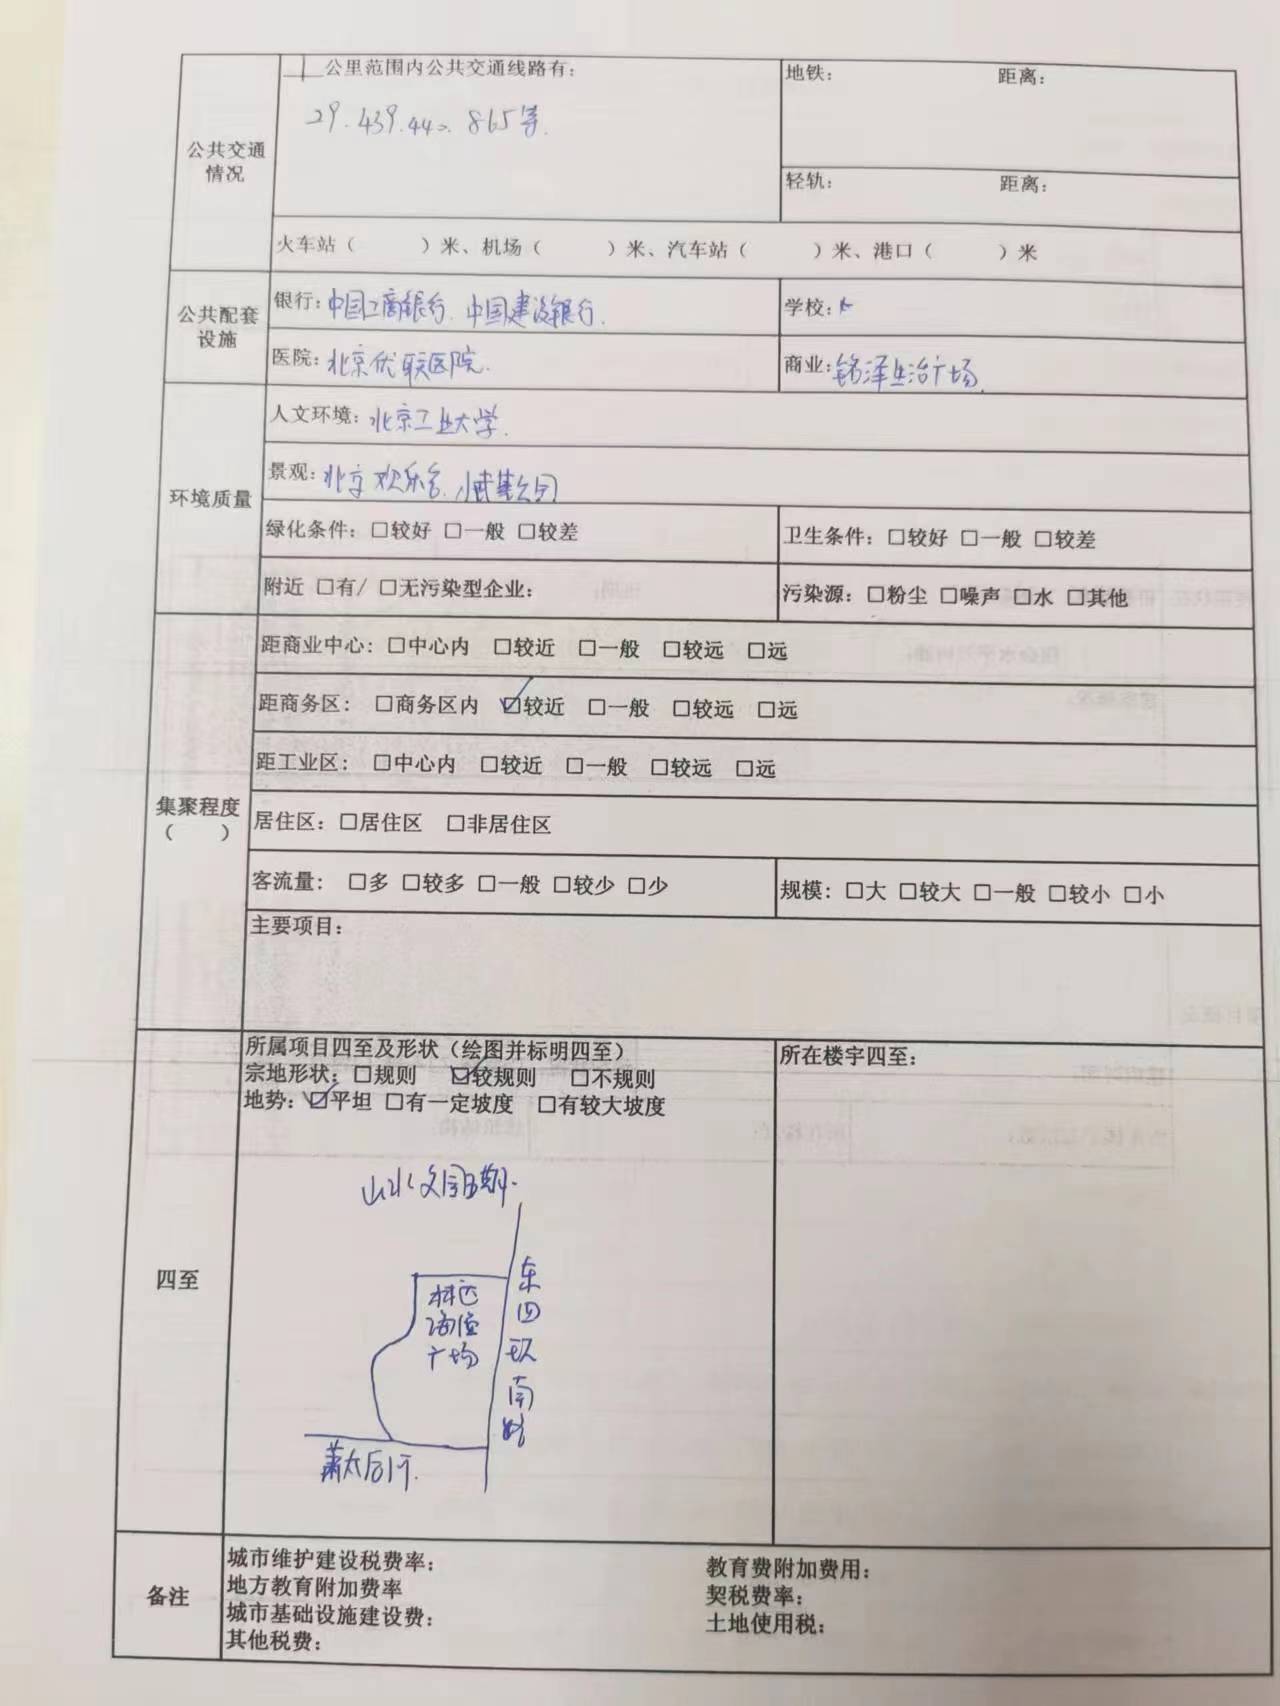 1 公里范围内公共交通线路有：
29.439.44 865等.
地铁： 距离：
公共交通
情况
轻轨： 距离：
火车站（ ）米、机场（ ）米、汽车站（ ）米、港口（ ）米
公共配套
设施
银行：中国工商银行、中国建设银行.
学校：
医院：北京优联医院.
商业：铭泽生活广场.
环境质量
人文环境：北京工业大学.
景观：北京欢乐谷、小武基公园
绿化条件：□较好 □一般 □较差
卫生条件：□较好 □一般 □较差
附近 □有/ □无污染型企业：
污染源：□粉尘 □噪声 □水 □其他
集聚程度
（ ）
距商业中心：□中心内 □较近 □一般 □较远 □远
距商务区：□商务区内 ☑较近 □一般 □较远 □远
距工业区：□中心内 □较近 □一般 □较远 □远
居住区：□居住区 □非居住区
客流量：□多 □较多 □一般 □较少 □少
规模：□大 □较大 □一般 □较小 □小
主要项目：
四至
所属项目四至及形状（绘图并标明四至）
宗地形状：□规则 ☑较规则 □不规则
地势：☑平坦 □有一定坡度 □有较大坡度
所在楼宇四至：
山水文园五期.
林达
海渔
广场
东四环南路
萧太后河.
备注
城市维护建设税费率；
教育费附加费用：
地方教育附加费率
契税费率：
城市基础设施建设费：
土地使用税：
其他税费：